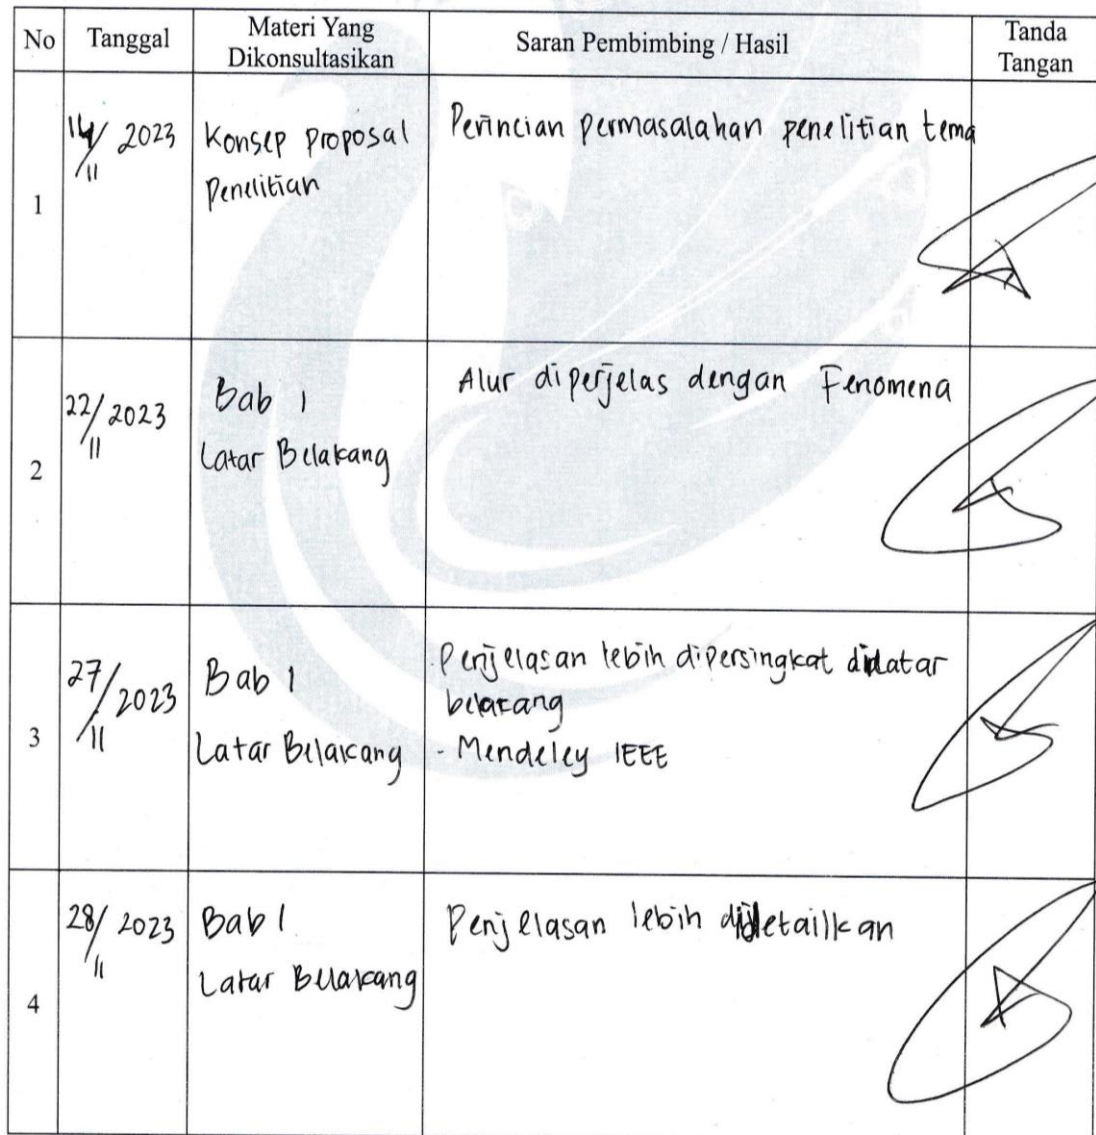 No Tanggal Materi Yang Dikonsultasikan Saran Pembimbing / Hasil Tanda Tangan
1
14/11 2023
Konsep proposal
Penelitian
Perincian permasalahan penelitian tema
2
22/11 2023
Bab 1
Latar Belakang
Alur diperjelas dengan Fenomena
3
27/11 2023
Bab 1
Latar Belakang
Penjelasan lebih dipersingkat dilatar
belakang
- Mendeley IEEE
4
28/11 2023
Bab 1
Latar Belakang
Penjelasan lebih didetailkan